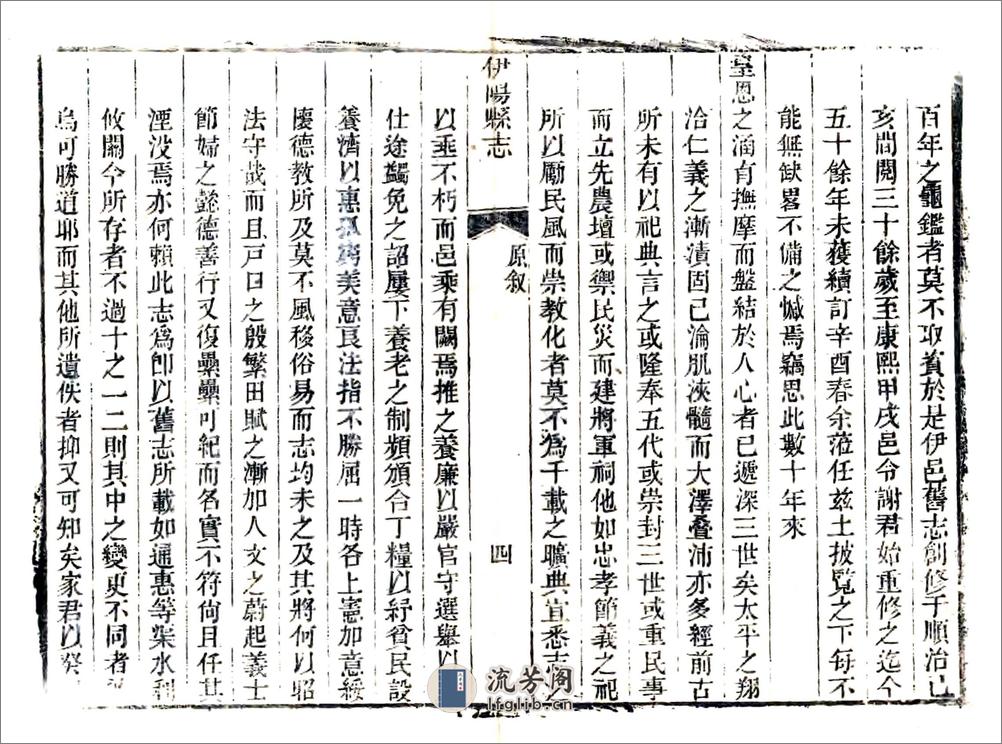 百年之龜鑑者莫不取資於是伊邑舊志創修于順治己
亥間閱三十餘歲至康熙甲戌邑令謝君始重修之迄今
五十餘年未獲續訂辛酉春余蒞任茲土披覽之下每不
能無缺畧不備之憾焉竊思此數十年來
皇恩之涵育撫摩而盤結於人心者已遞深三世矣太平之翔
洽仁義之漸漬固已淪肌浹髓而大澤叠沛亦多經前古
所未有以祀典言之或隆奉五代或崇封三世或重民事
而立先農壇或禦民災而建將軍祠他如忠孝節義之祀
所以勵民風而崇教化者莫不為千載之曠典宜悉志之
伊陽縣志
原叙
四
以垂不朽而邑乘有闕焉推之養廉以嚴官守選舉以
仕途蠲免之詔屢下養老之制頻頒合丁糧以紓貧民設
養濟以惠孤窮美意良法指不勝屈一時各上憲加意綏
懷德教所及莫不風移俗易而志均未之及其將何以昭
法守哉而且戸口之殷繁田賦之漸加人文之蔚起義士
節婦之懿德善行又復纍纍可紀而名實不符尙且任其
湮没焉亦何賴此志為卽以舊志所載如通惠等渠水利
攸關今所存者不過十之一二則其中之變更不同者
烏可勝道耶而其他所遺佚者抑又可知矣家君以癸
流芳阁
lfglib.cn